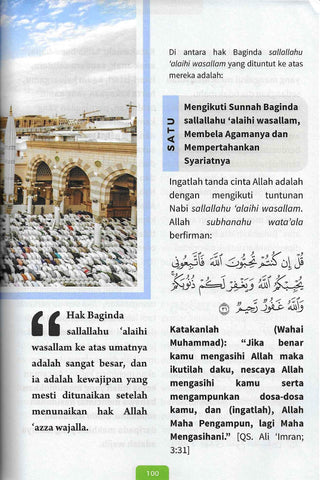 Di antara hak Baginda sallallahu
‘alaihi wasallam yang dituntut ke atas
mereka adalah:
SATU
Mengikuti Sunnah Baginda
sallallahu ‘alaihi wasallam,
Membela Agamanya dan
Mempertahankan
Syariatnya
Ingatlah tanda cinta Allah adalah
dengan mengikuti tuntunan
Nabi sallallahu ‘alaihi wasallam.
Allah subhanahu wata’ala
berfirman:
قُلْ إِن كُنتُمْ تُحِبُّونَ اللَّهَ فَاتَّبِعُونِي
يُحْبِبْكُمُ اللَّهُ وَيَغْفِرْ لَكُمْ ذُنُوبَكُمْ ۗ
وَاللَّهُ غَفُورٌ رَّحِيمٌ ۝٣١
Katakanlah (Wahai
Muhammad): “Jika benar
kamu mengasihi Allah maka
ikutilah daku, nescaya Allah
mengasihi kamu serta
mengampunkan dosa-dosa
kamu, dan (ingatlah), Allah
Maha Pengampun, lagi Maha
Mengasihani.” [QS. Ali ‘Imran;
3:31]
“ Hak Baginda
sallallahu ‘alaihi
wasallam ke atas umatnya
adalah sangat besar, dan
ia adalah kewajipan yang
mesti ditunaikan setelah
menunaikan hak Allah
‘azza wajalla.
100